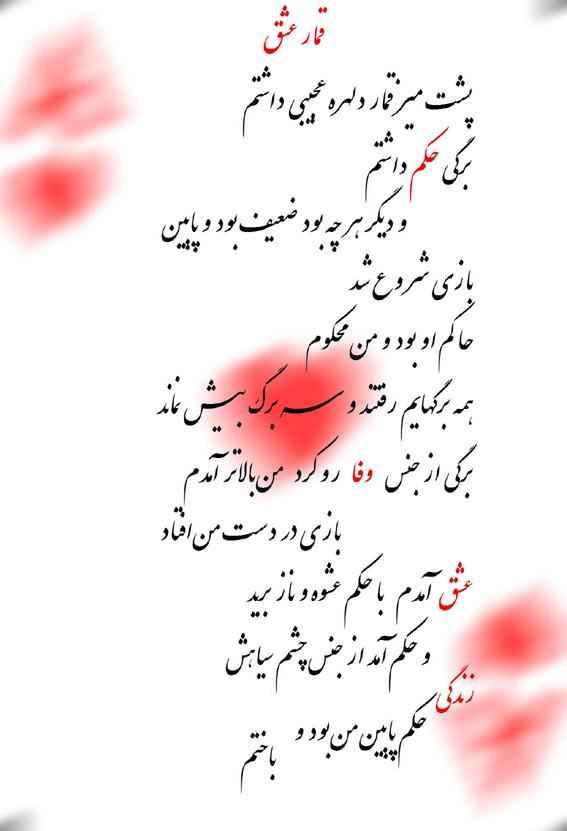 قمار عشق
پشت میز قمار دلهره عجیبی داشتم
برگی حکم داشتم
و دیگر هر چه بود ضعیف بود و پایین
بازی شروع شد
حاکم او بود و من محکوم
همه برگهایم رفتند و سه برگ بیش نماند
برگی از جنس وفا رو کرد من بالاتر آمدم
بازی در دست من افتاد
عشق آمدم با حکم عشوه و ناز برید
و حکم آمد از جنس چشم سیاهش
زندگی
حکم پایین من بود و باختم